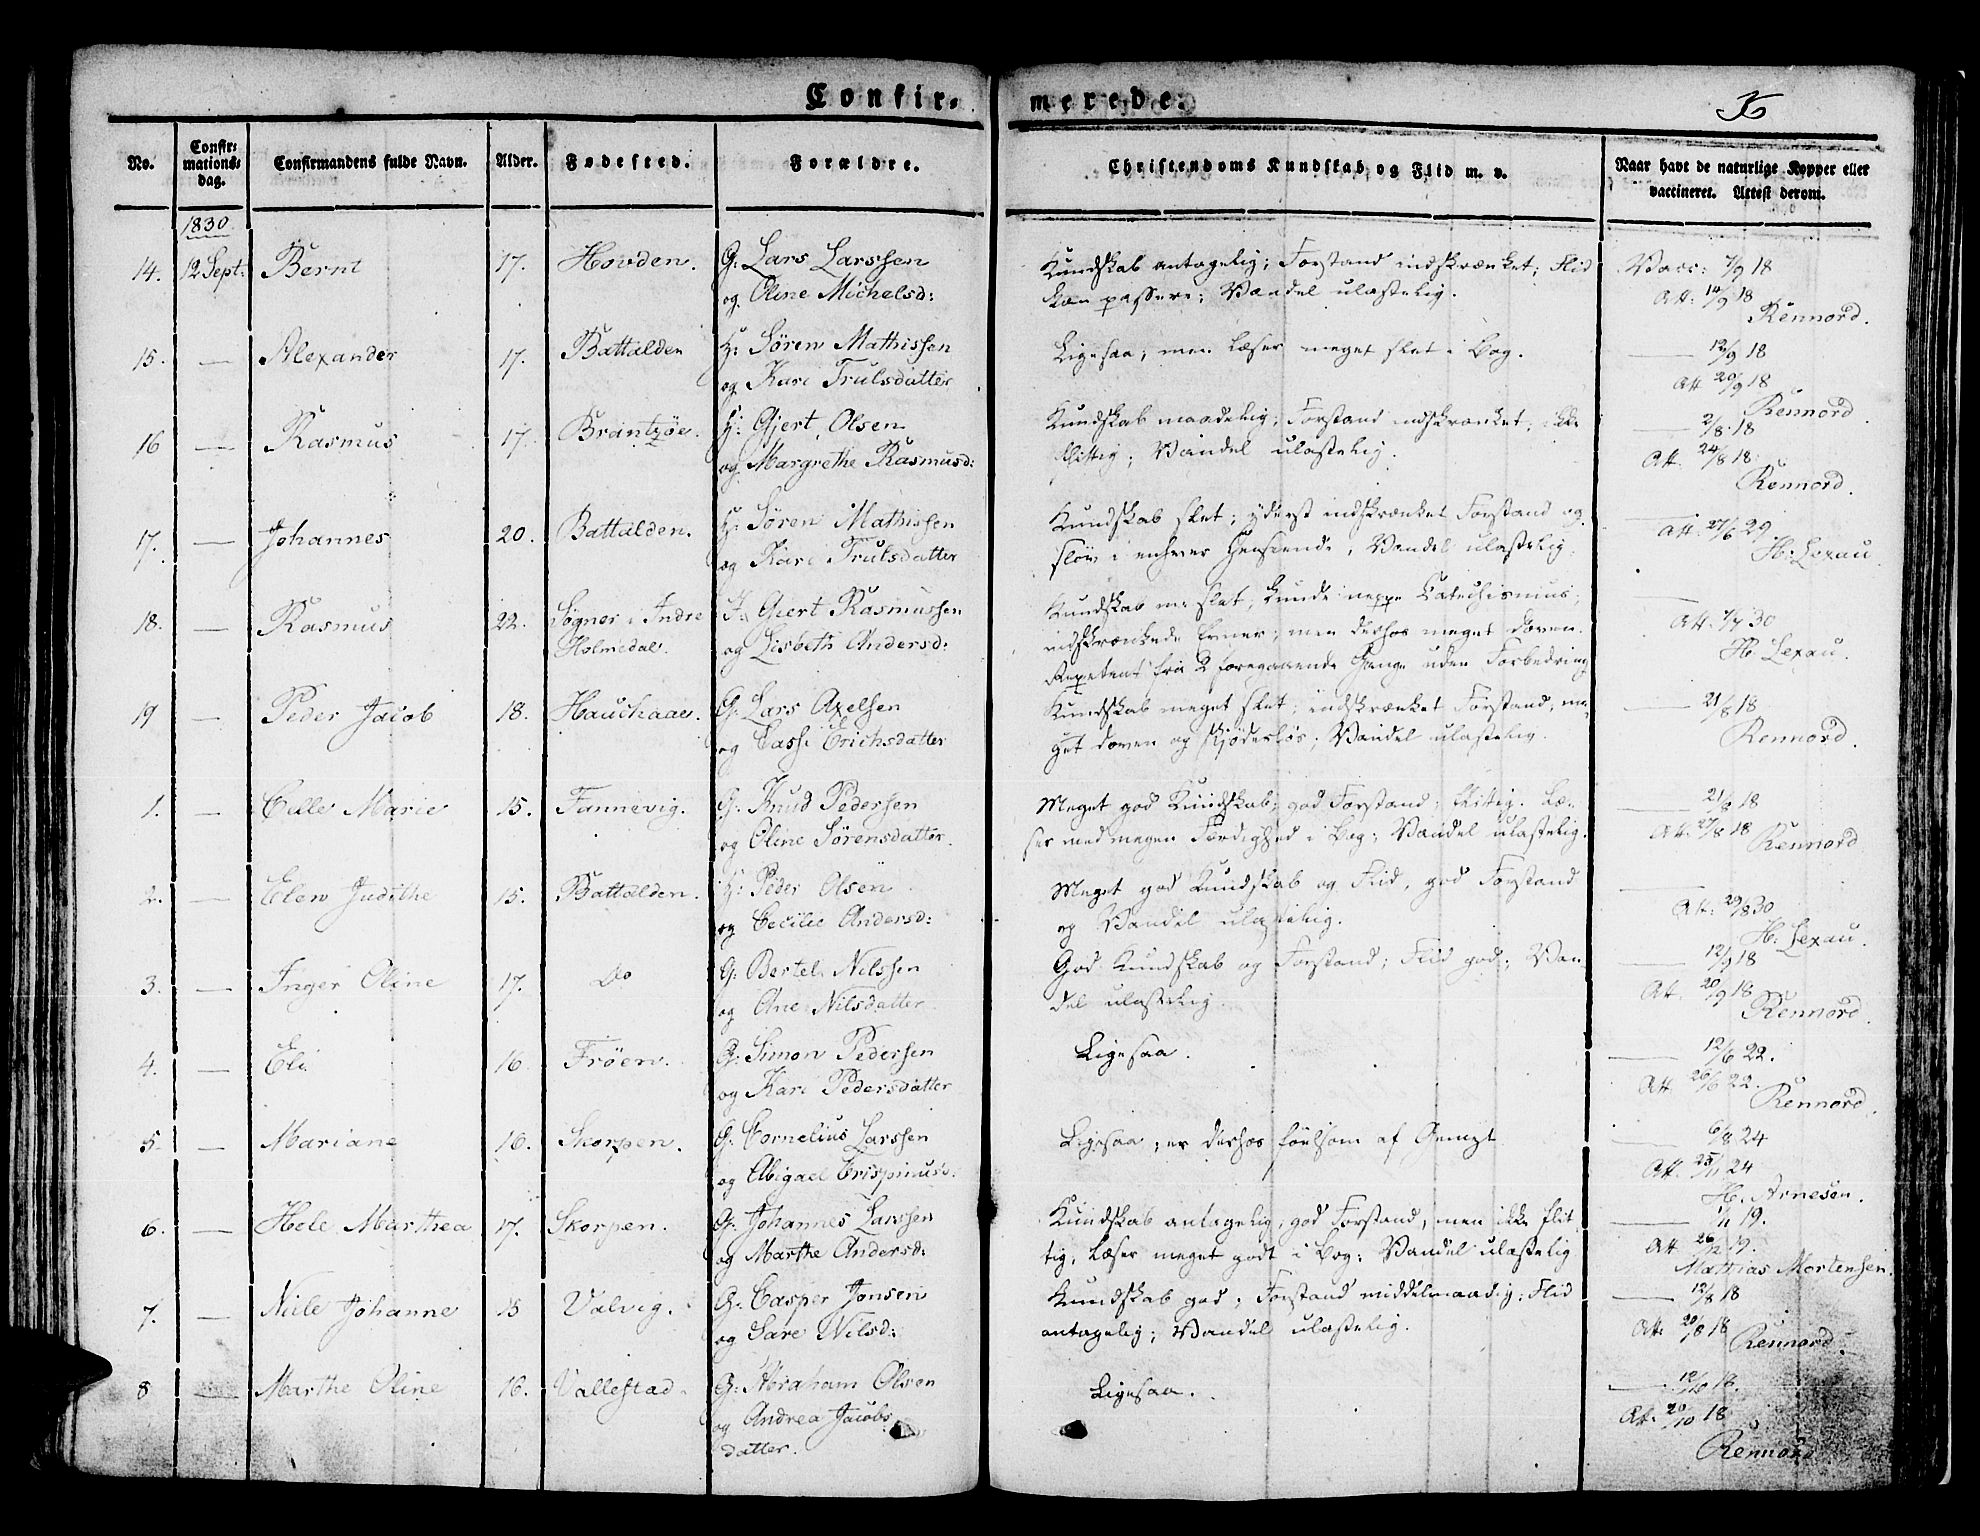 Confir-
merede.
36
No.
Confir-
mations-
dag.
Confirmandens fulde Navn.
Alder.
Fødested.
Forældre.
Christendoms Kundskab og Flid m. v.
Naar havt de naturlige Kopper eller
vaccineret. Attest derom.
1830
14. 12 Sept: Bernt 17. Hovden. G: Lars Larssen
og Oline Michelsd:
Kundskab antagelig; Forstand indskrænket; Flid
kan passere; Vandel ulastelig.
Vacc: 7/9 18
Att: 14/9 18
Rennord.
15. — Alexander 17. Battalden H: Søren Mathissen
og Kari Trulsdatter
Ligesaa; men læser meget slet i Bog.
— 12/9 18
Att 20/9 18
Rennord
16 — Rasmus 17. Brantzøe. H: Gjert Olsen
og Margrethe Rasmusd:
Kundskab maadelig; Forstand indskrænket; ikke
flittig; Vandel ulastelig.
— 2/8 18
Att. 24/8 18
Rennord.
17. — Johannes 20. Battalden. H: Søren Mathissen
og Kari Trulsdatter
Kundskab slet; yderst indskrænket Forstand og
sløv i enhver Henseende; Vandel ulastelig.
Att: 27/6 29.
H: Lexau
18. — Rasmus 22. Søgner i Indre
Holmedal.
Giert Rasmussen
og Lisbeth Andersd:
Kundskab slet, kunde neppe Catechismus;
indskrænkede Evner; men derhos meget doven.
Repetent fra 2 foregaaende Gange uden Forbedring
Att. 7/7 30
H: Lexau.
19 — Peder Jacob 18. Hauchaae. G: Lars Axelsen
og Lasse Erichsdatter
Kundskab meget slet; indskrænket Forstand, me-
get doven og skjødesløs; Vandel ulastelig.
— 21/8 18
Rennord.
1. — Celle Marie 15. Fannevig. G: Knud Pedersen
og Oline Sørensdatter.
Meget god Kundskab; god Forstand; flittig. Læ-
ser med megen Færdighed i Bog; Vandel ulastelig.
— 21/8 18
Att: 27/8 18
Rennord
2. — Elen Judithe 15. Battalden. H: Peder Olsen
og Cecilie Andersd:
Meget god Kundskab og Flid, god Forstand
og Vandel ulastelig.
Att: 29/8 30
H: Lexau.
3. — Inger Oline 17. Do G: Bertel Nilssen
og Ane Nilsdatter
God Kundskab og Forstand; Flid god; Van
del ulastelig.
— 12/9 18
Att. 20/9 18
Rennord.
4. — Eli 16 Frøen. G: Simon Pedersen
og Kari Pedersdatter
Ligesaa.
— 12/6 22.
Att 26/6 22.
Rennord.
5. — Mariane 16. Skorpen. G: Cornelius Larssen
og Abigael Crispinusd:
Ligesaa; er derhos følsom af Gemyt
— 6/8 24
Att. 25/11 24
H. Arnesen.
6. — Hele Marthea 17. Skorpen. G: Johannes Larssen
og Marthe Andersd:
Kundskab antagelig, god Forstand, men ikke flit
tig, læser meget godt i Bog; Vandel ulastelig
— 1/11 19.
Att 26/12 19.
Mathias Mortensen.
7. — Nille Johanne 15 Valvig. G: Casper Jonsen
og Sare Nilsd:
Kundskab god; Forstand middelmaadig; Flid
antagelig; Vandel ulastelig.
— 12/8 18
Att: 20/8 18
Rennord.
8 — Marthe Oline 16. Vallestad. G: Abraham Olsen
og Andrea Jacobs
datter.
Ligesaa.
— 12/10 18.
Att: 20/10 18
Rennord